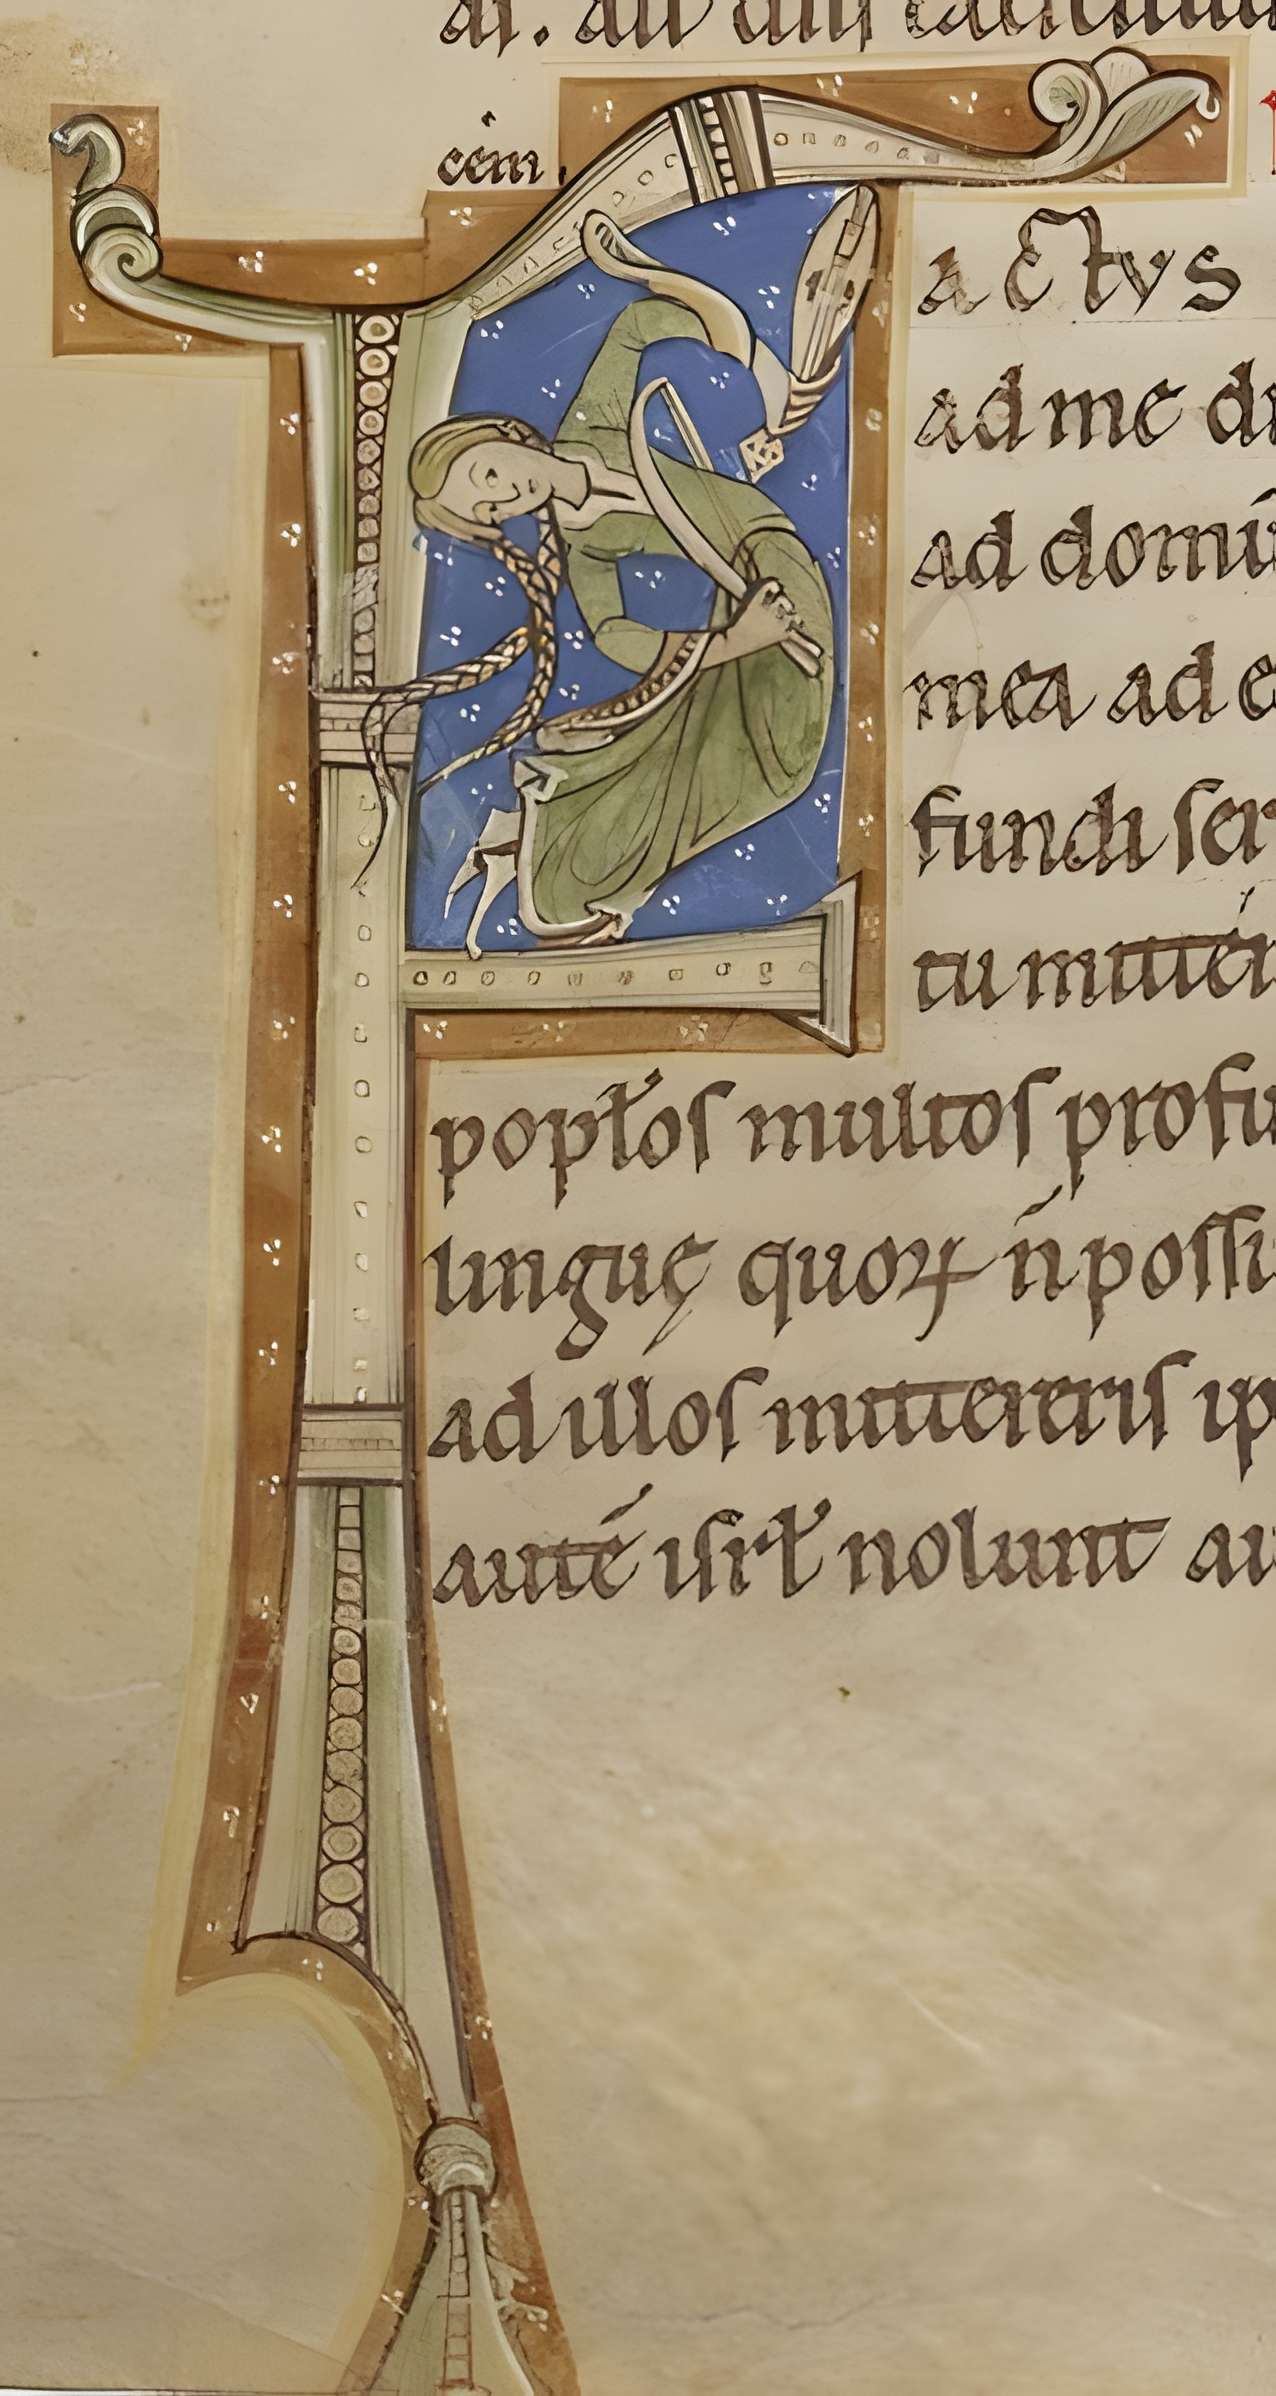 cem.
FaCtvs
ad me di
ad domin̄
mea ad e
fundi ser
tu mitter
popl̓os multos profu
linguę quoꝝ ń possu
ad illos mittereris ip
auté isrl̓ nolunt au